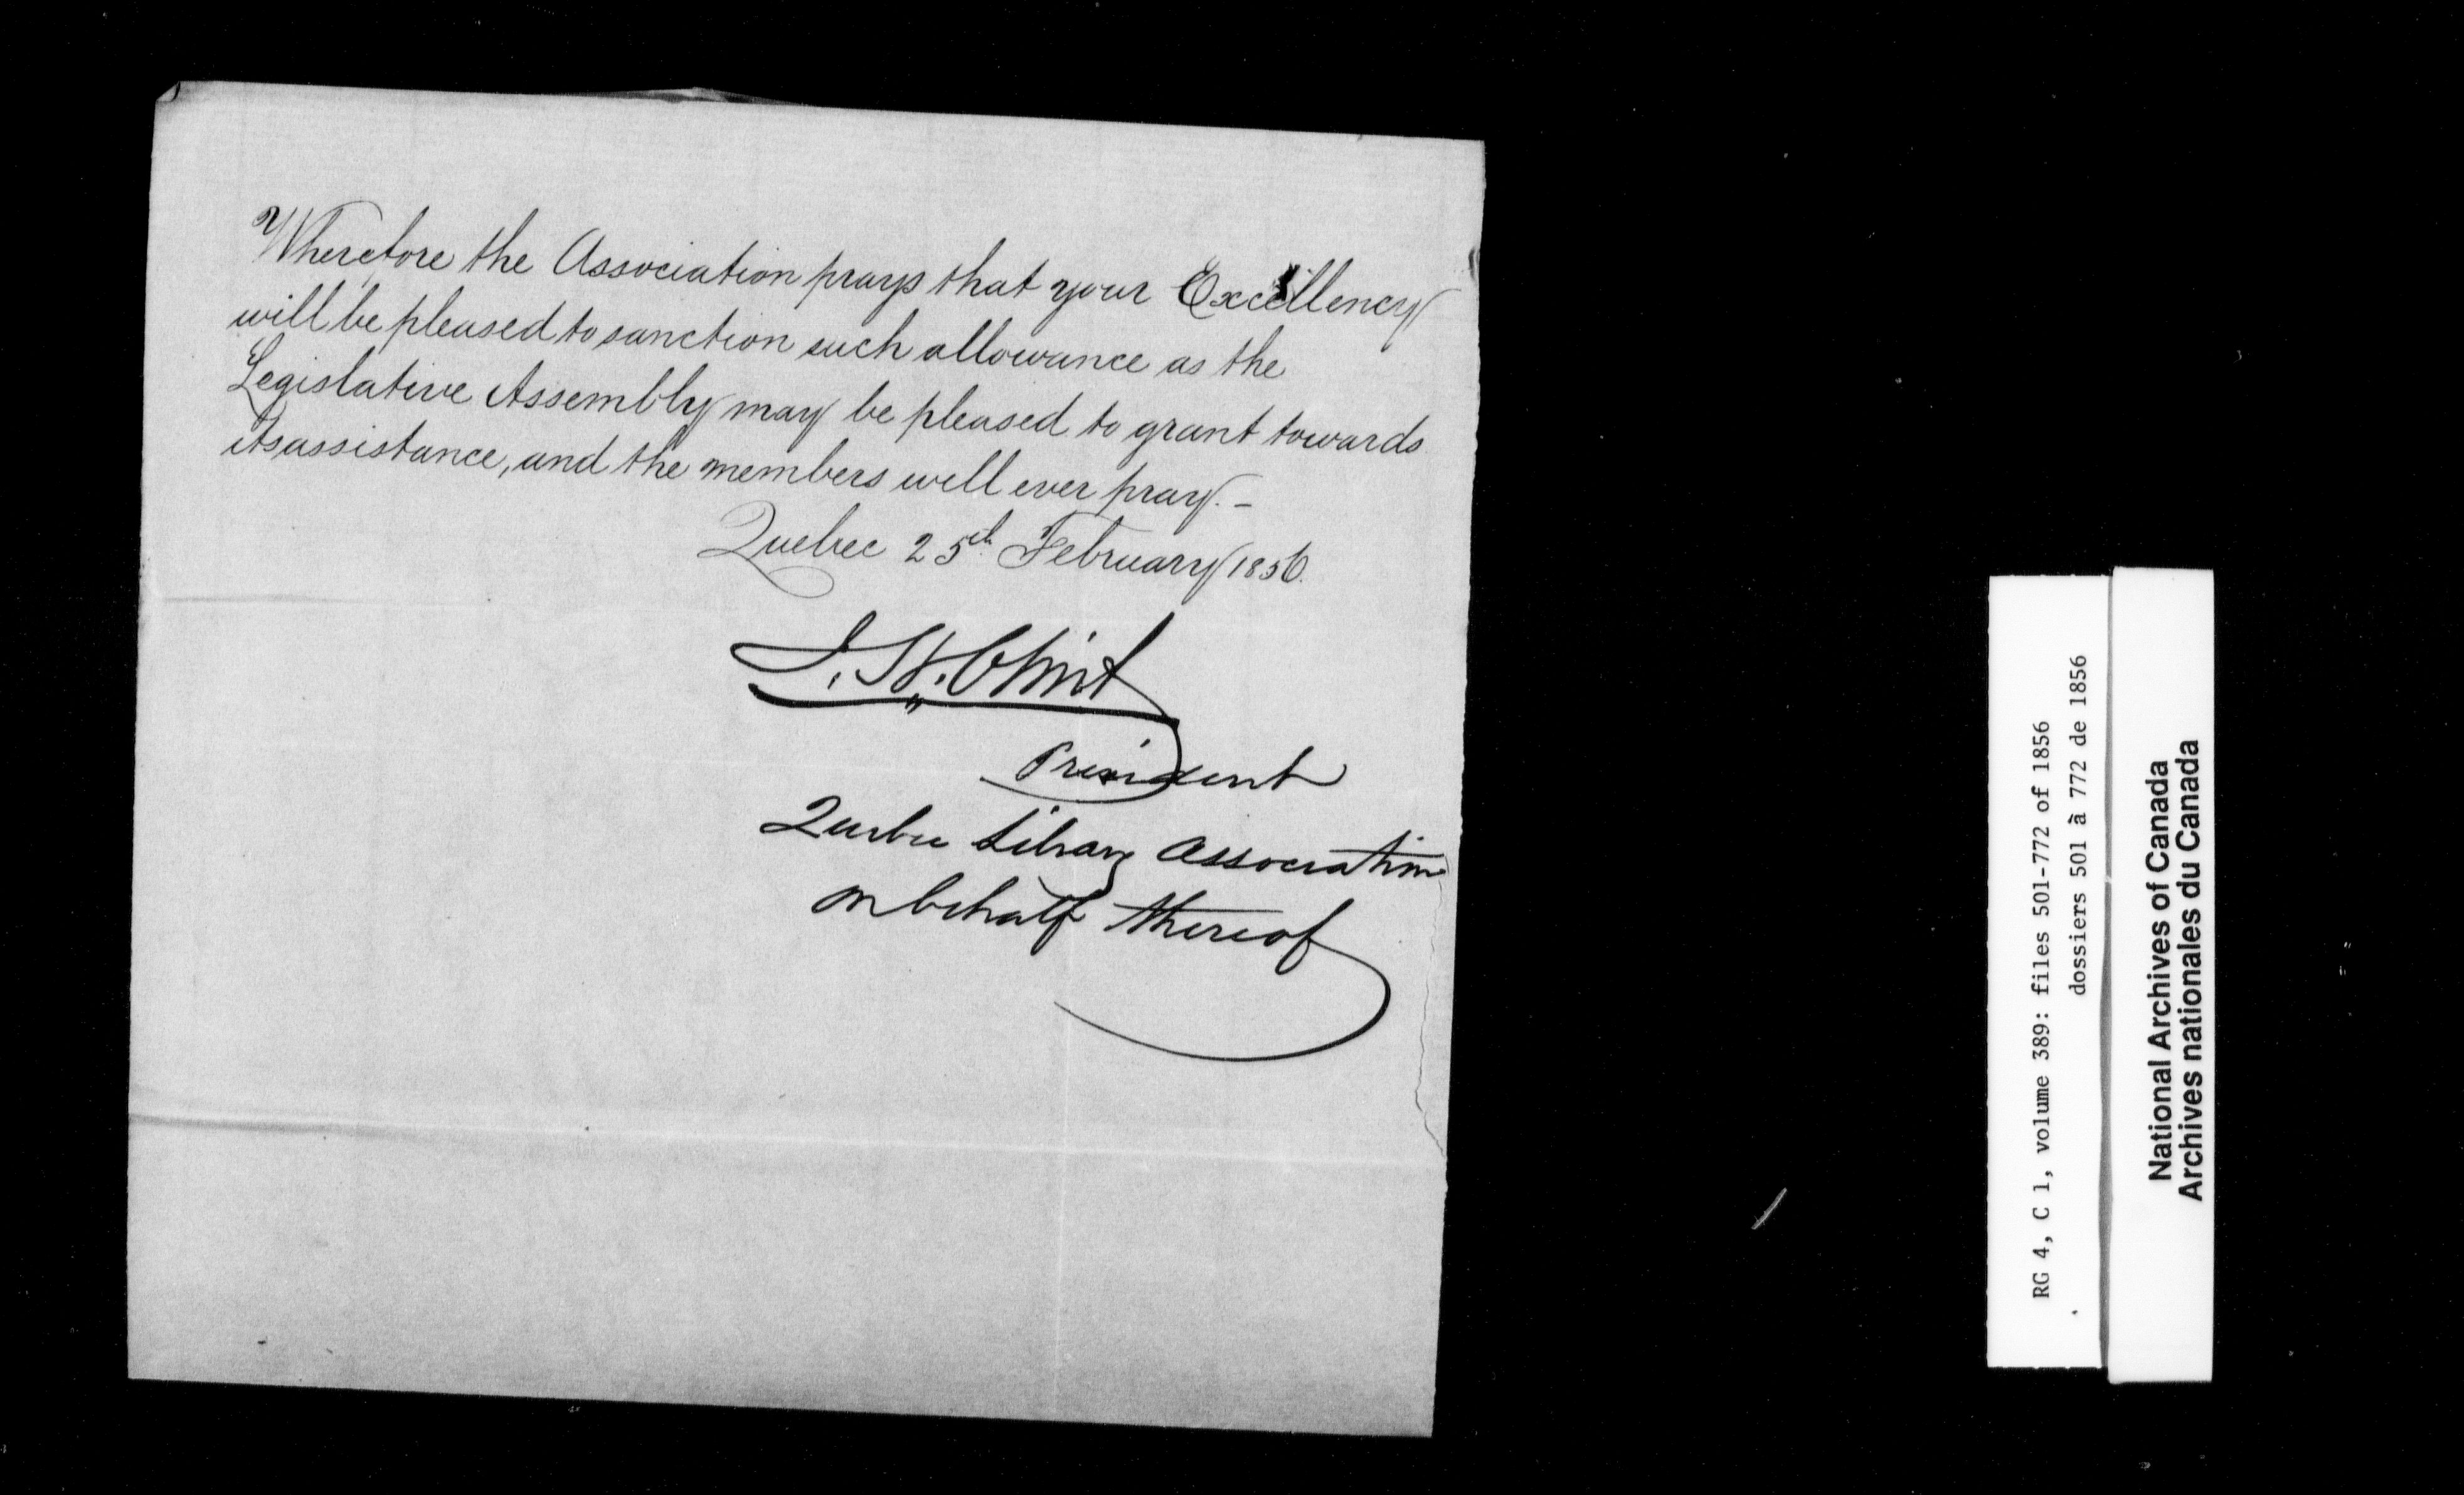 Wherefore the Association prays that your Excellency
will be pleased to sanction such allowance as the
Legislative Assembly may be pleased to grant towards
its assistance, and the members will ever pray. –
Quebec 25th February 1856.
President
Quebec Library Association
on behalf thereof
RG 4, C 1, volume 389: files 501-772 of 1856
dossiers 501 à 772 de 1856
National Archives of Canada
Archives nationales du Canada